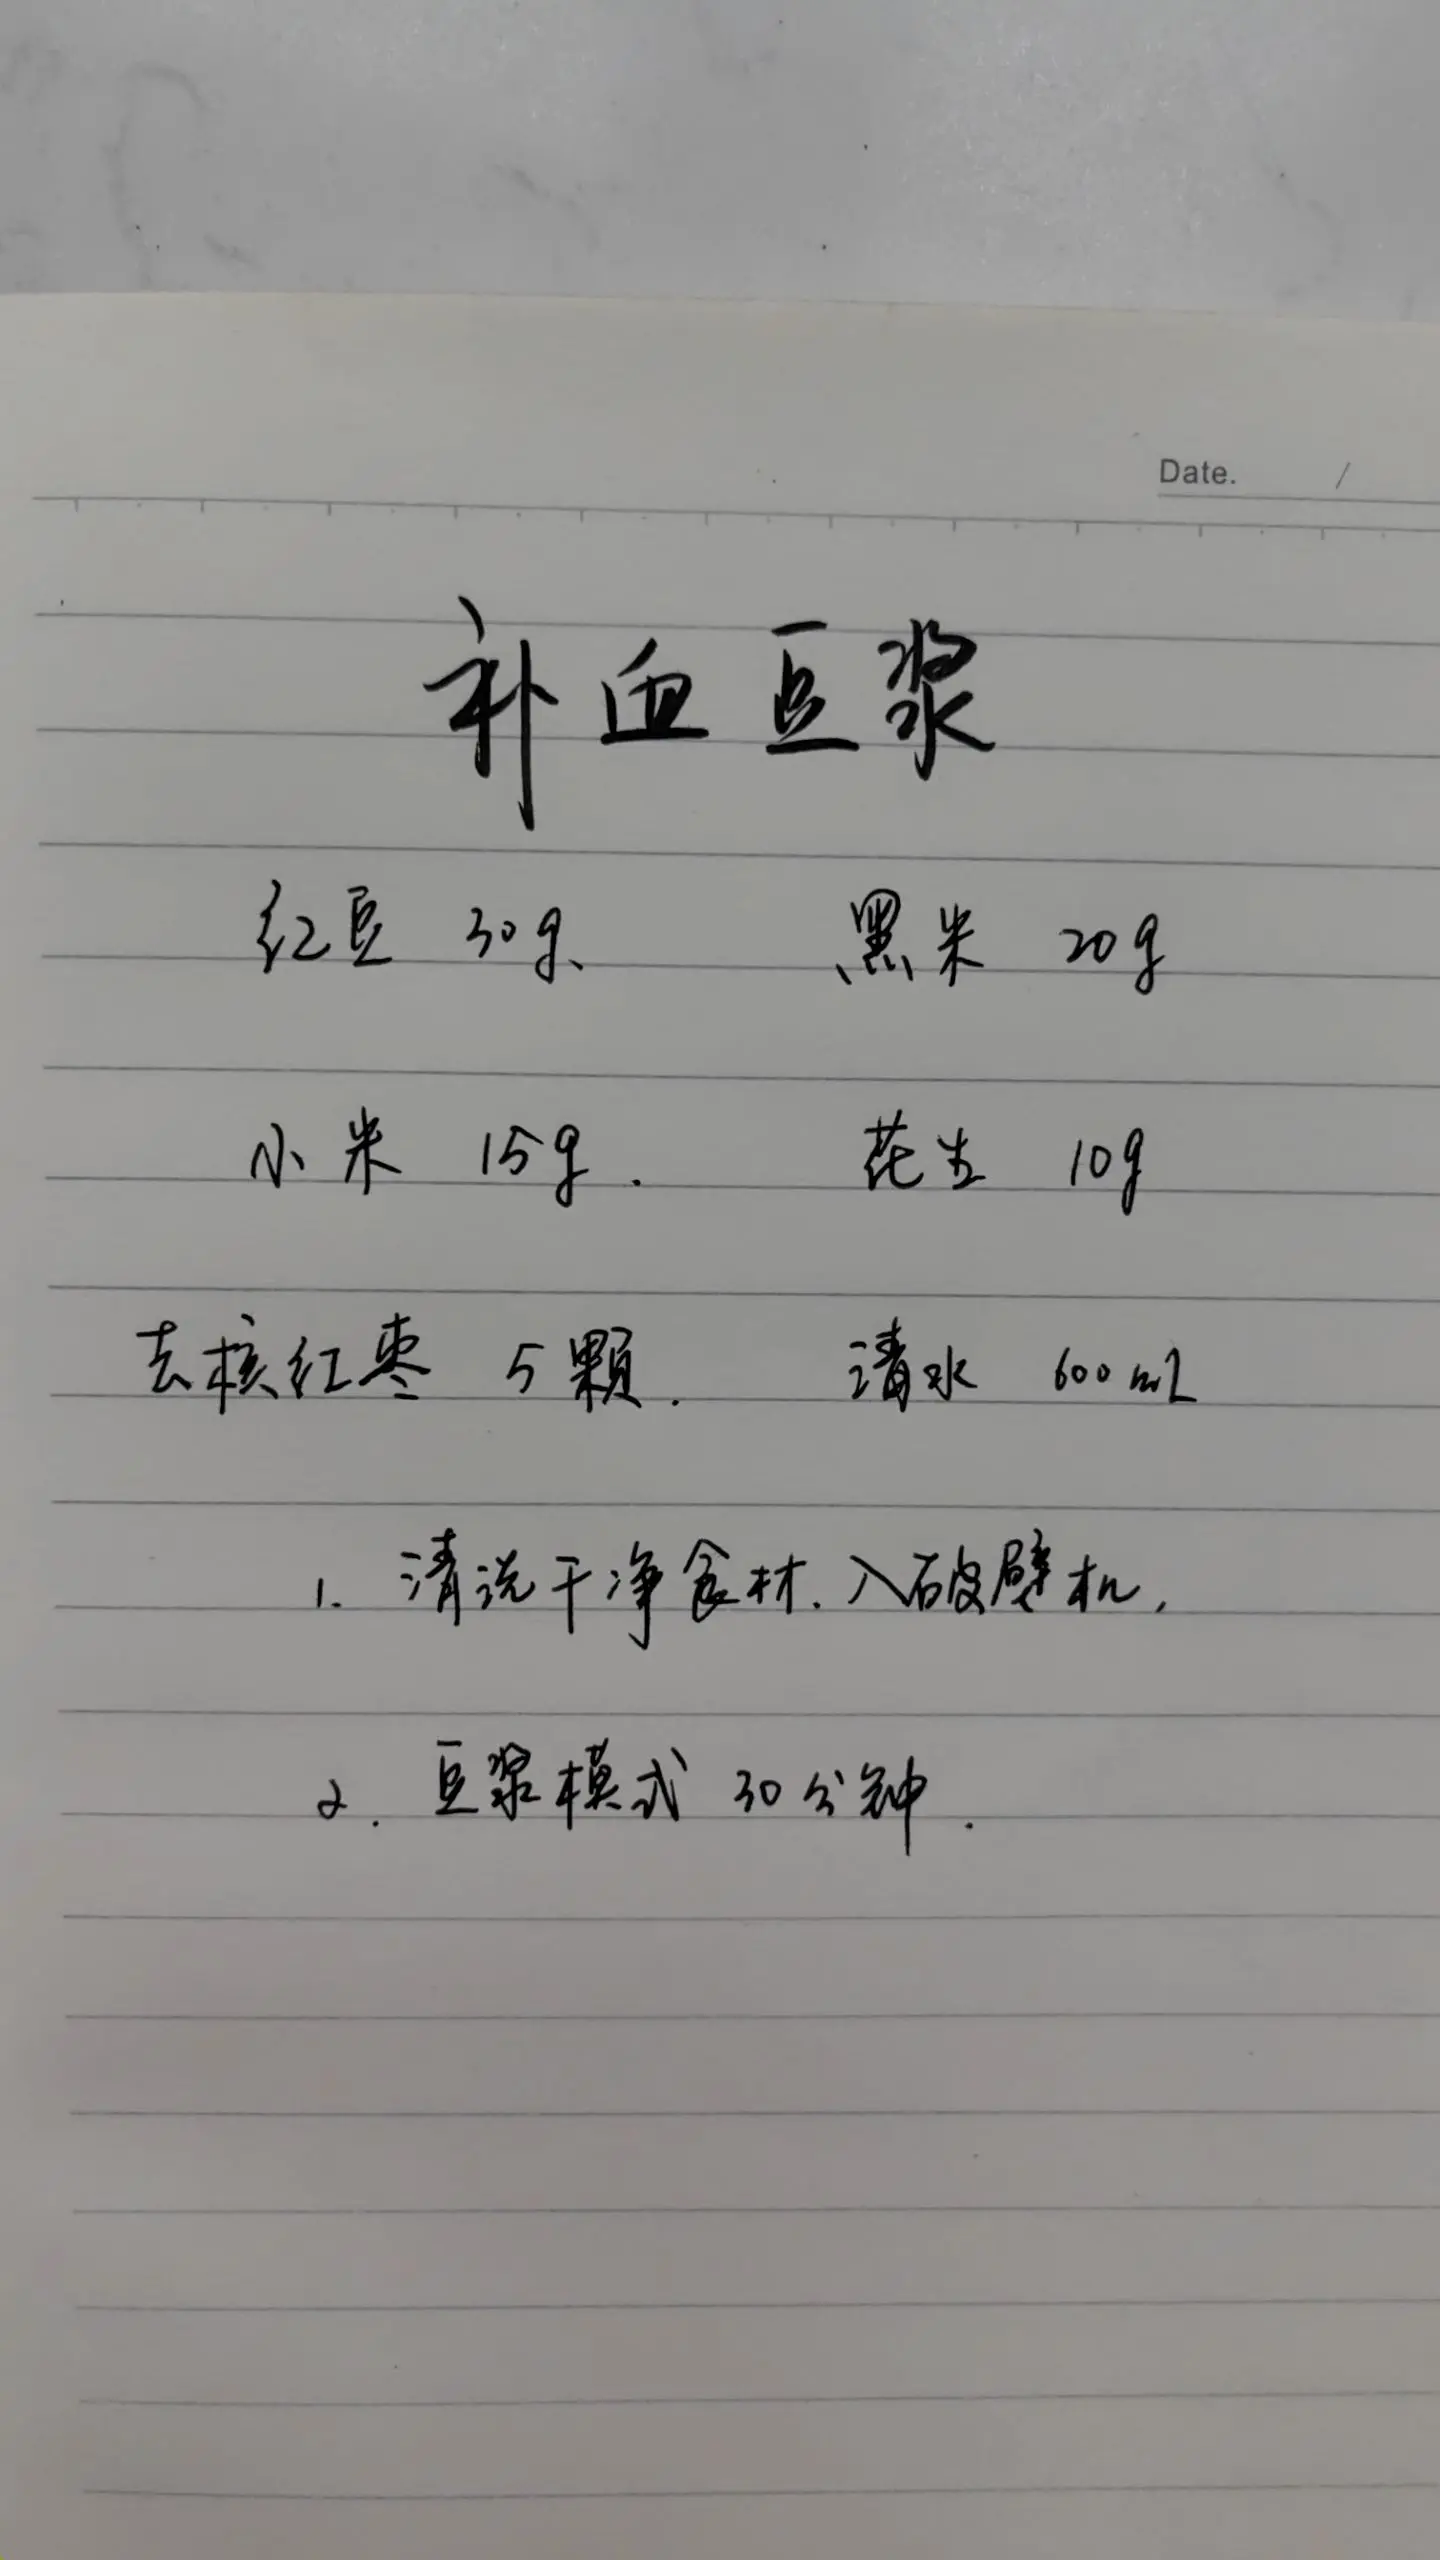 Date. /
补血豆浆
红豆 30g、 黑米 20g
小米 15g. 花生 10g
去核红枣 5颗. 清水 600mL
1. 清洗干净食材.入破壁机,
2. 豆浆模式 30分钟.